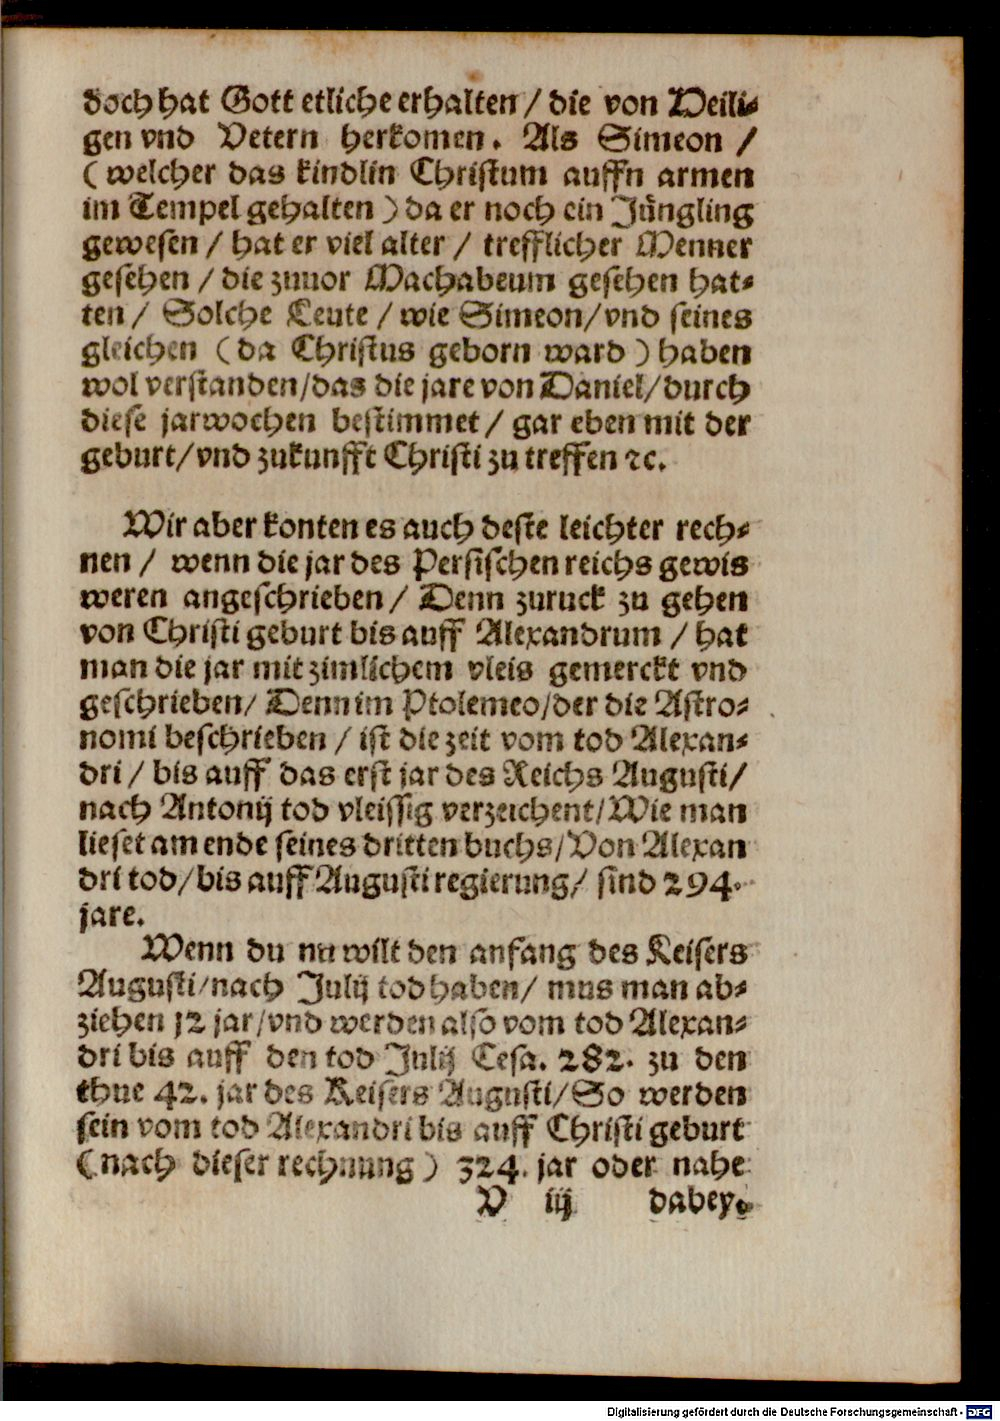 doch hat Gott etliche erhalten / die von Veili⸗
gen vnd Vetern herkomen. Als Simeon /
( welcher das kindlin Christum auffn armen
im Tempel gehalten ) da er noch ein Jüngling
gewesen / hat er viel alter / trefflicher Menner
gesehen / die zuuor Machabeum gesehen hat⸗
ten / Solche Leute / wie Simeon/ vnd seines
gleichen ( da Christus geborn ward ) haben
wol verstanden/das die jare von Daniel/durch
diese jarwochen bestimmet / gar eben mit der
geburt/vnd zukunfft Christi zu treffen ꝛc.
Wir aber konten es auch deste leichter rech⸗
nen / wenn die jar des Persischen reichs gewis
weren angeschrieben / Denn zuruck zu gehen
von Christi geburt bis auff Alexandrum / hat
man die jar mit zimlichem vleis gemerckt vnd
geschrieben/ Denn im Ptolemeo/der die Astro⸗
nomi beschrieben / ist die zeit vom tod Alexan⸗
dri / bis auff das erst jar des Reichs Augusti/
nach Antonij tod vleissig verzeichent/Wie man
lieset am ende seines dritten buchs/Von Alexan
dri tod/bis auff Augusti regierung/ sind 294.
jare.
Wenn du nu wilt den anfang des Keisers
Augusti/nach Julij tod haben/ mus man ab⸗
ziehen 12 jar/vnd werden also vom tod Alexan⸗
dri bis auff den tod Julij Cesa. 282. zu den
thue 42. jar des Keisers Augusti/So werden
sein vom tod Alexandri bis auff Christi geburt
( nach dieser rechnung ) 324. jar oder nahe
V iij dabey.
Digitalisierung gefördert durch die Deutsche Forschungsgemeinschaft - DFG